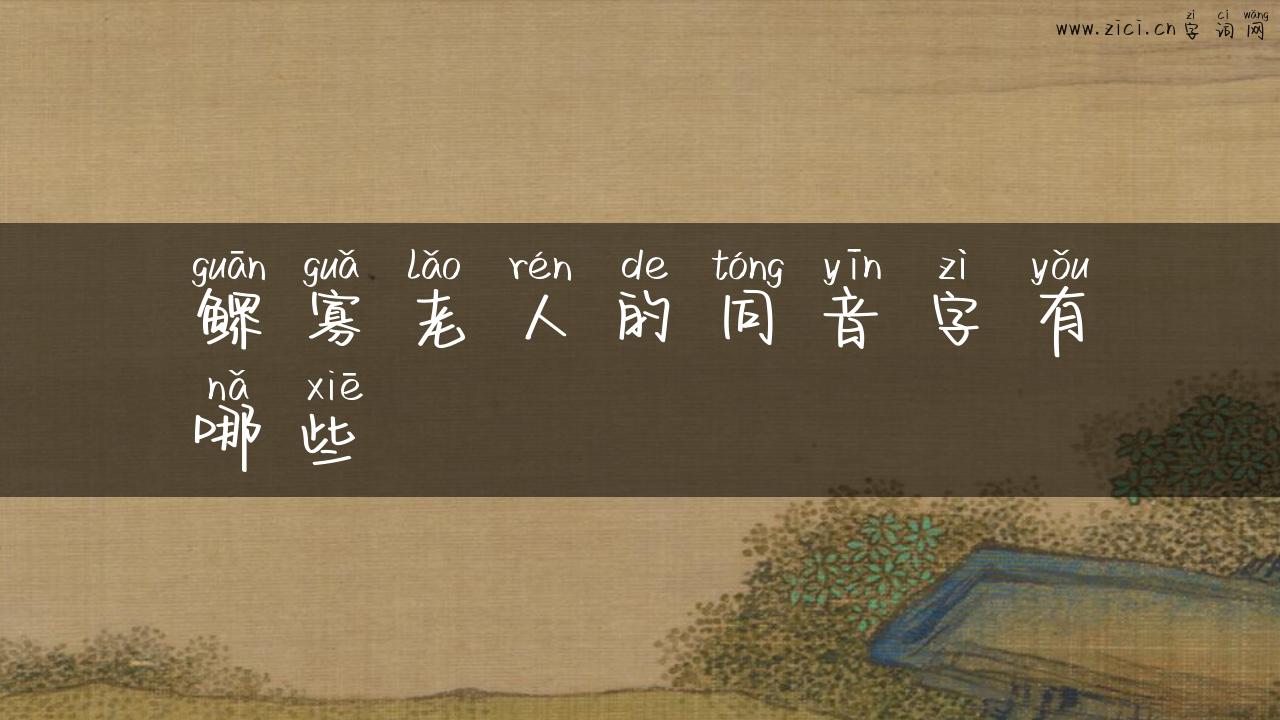 zì cí wǎng
www.zici.cn 字词网
guān guǎ lǎo rén de tóng yīn zì yǒu
鳏寡老人的同音字有
nǎ xiē
哪些